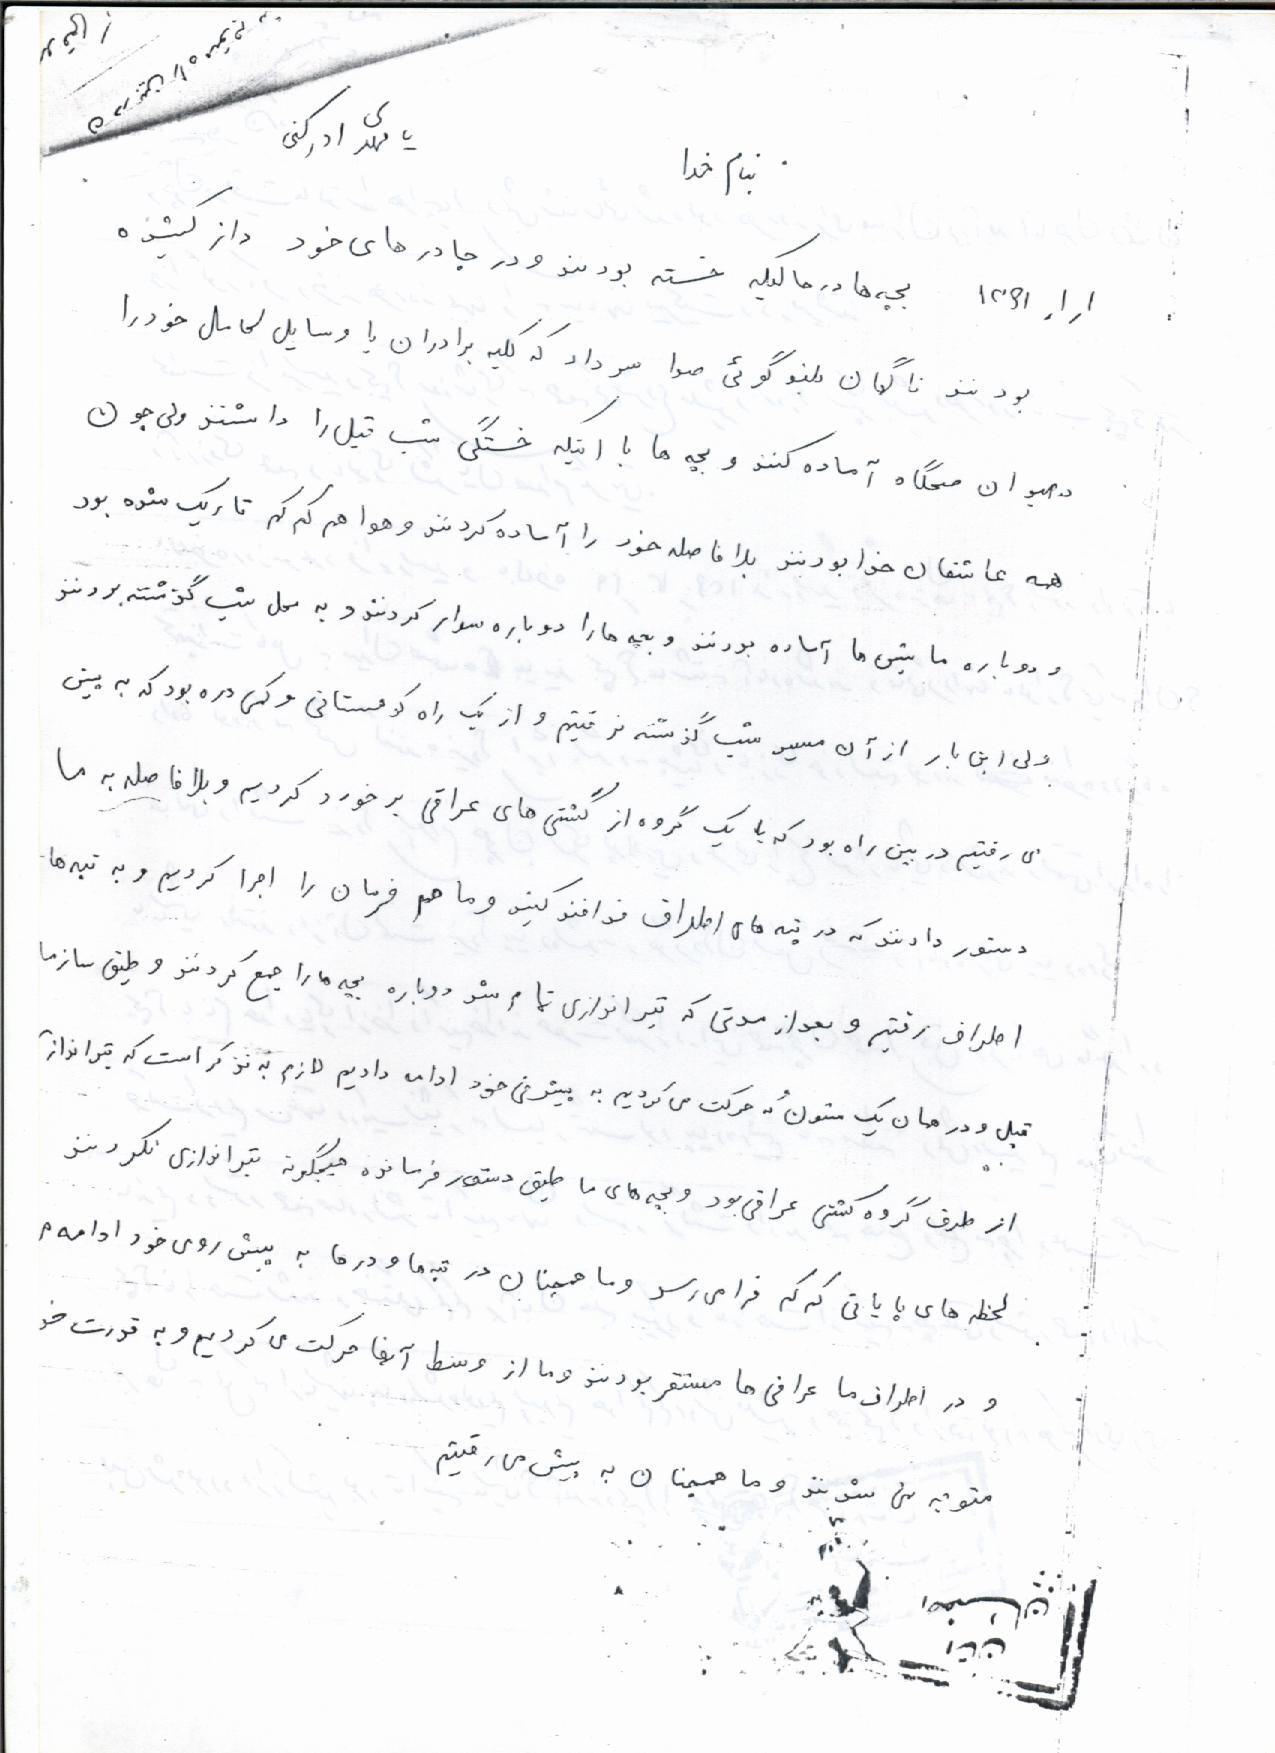 بنام خدا
یا مهدی ادرکنی
بچه ها در حالیکه خسته بودند و در چادر های خود دراز کشیده
بودند ناگهان بلندگوئی صدا سر داد که کلیه برادران با وسایل کامل خود را
در میدان صبحگاه آماده کنند و بچه ها با اینکه خستگی شب قبل را داشتند ولی چون
همه عاشقان خدا بودند بلافاصله خود را آماده کردند و هوا هم کم کم تاریک شده بود
و دوباره ماشین ها آماده بودند و بچه ها را دوباره سوار کردند و به محل شب گذشته بردند
ولی این بار از آن مسیر شب گذشته نرفتیم و از یک راه کوهستانی و دره بود که به پیش
می رفتیم در بین راه بود که با یک گروه از گشتی های عراقی برخورد کردیم و بلافاصله به ما
دستور دادند که در تپه های اطراف پدافند کنید و ما هم فرمان را اجرا کردیم و به تپه ها
اطراف رفتیم و بعد از مدتی که تیراندازی تمام شد دوباره بچه ها را جمع کردند و طبق سازما
قبل و در همان یک ستون که حرکت می کردیم به پیشروی خود ادامه دادیم لازم به تذکر است که تیرانداز
از طرف گروه گشتی عراقی بود و بچه های ما طبق دستور فرمانده هیچگونه تیراندازی نکردند
لحظه های پایانی کم کم فرا می رسد و ما همچنان در تپه ها و دره ها به پیش روی خود ادامه م
و در اطراف ما عراقی ها مستقر بودند و ما از وسط آنها حرکت می کردیم و به قدرت خد
متوجه نمی شدند و ما همچنان به پیش می رفتیم